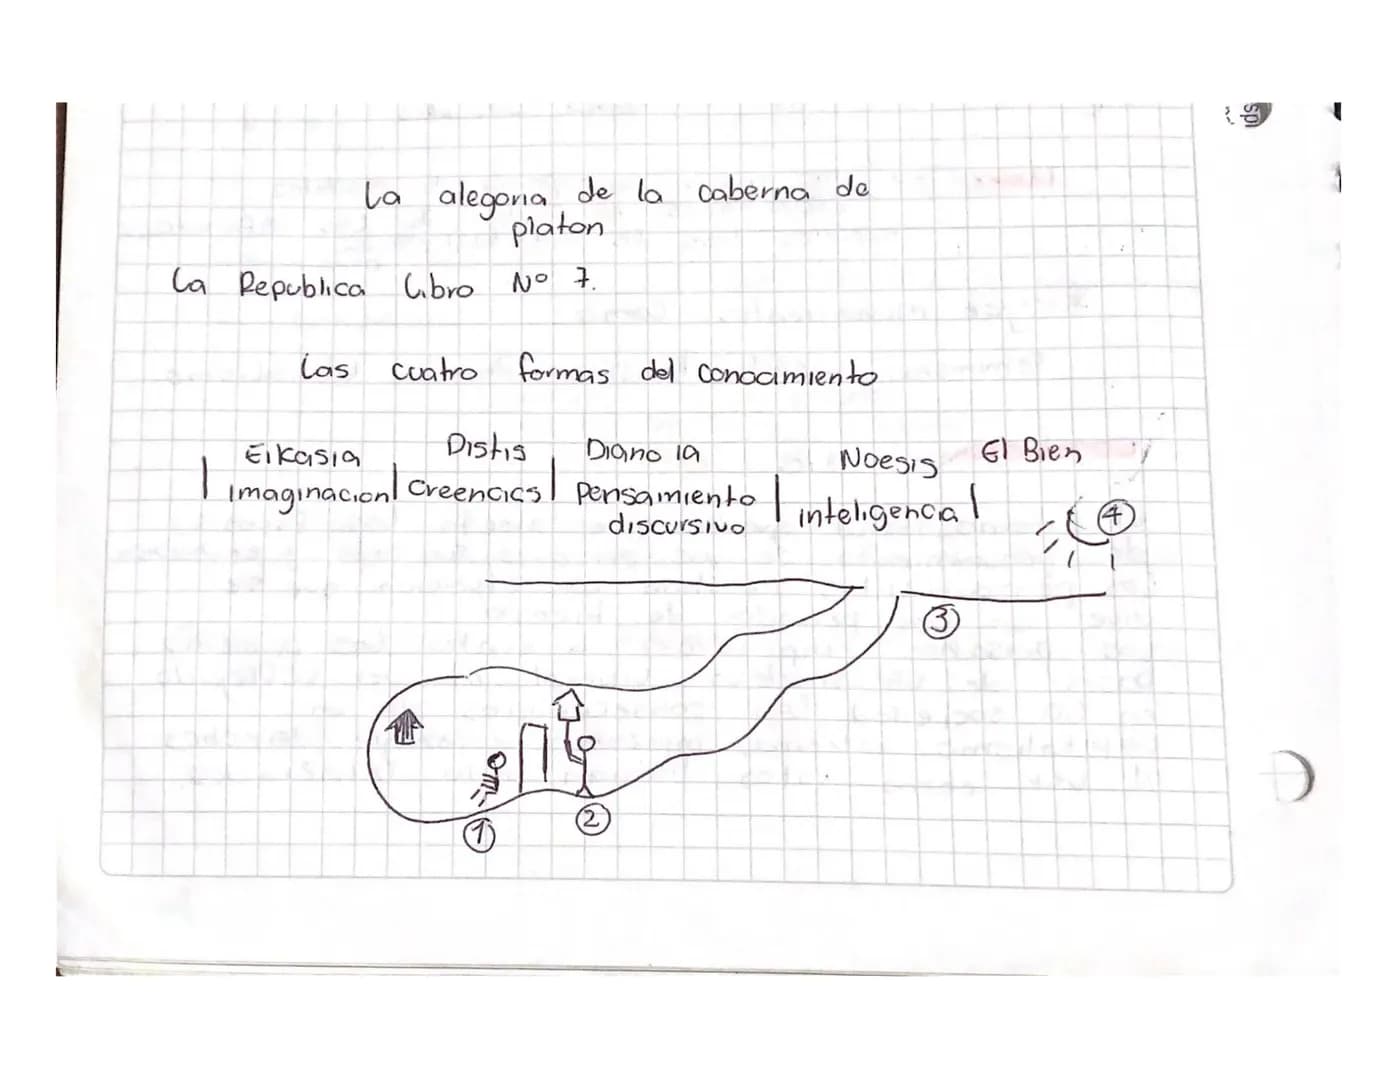 La alegoria de la caberna de
platon
La Republica Libro Nº 7.
Las cuatro formas del conocimiento
Eikasia Distis Diano ia Noesis El Bien
| imaginacion | creencics | Pensamiento | inteligencia |
discursivo
4
3
1
2